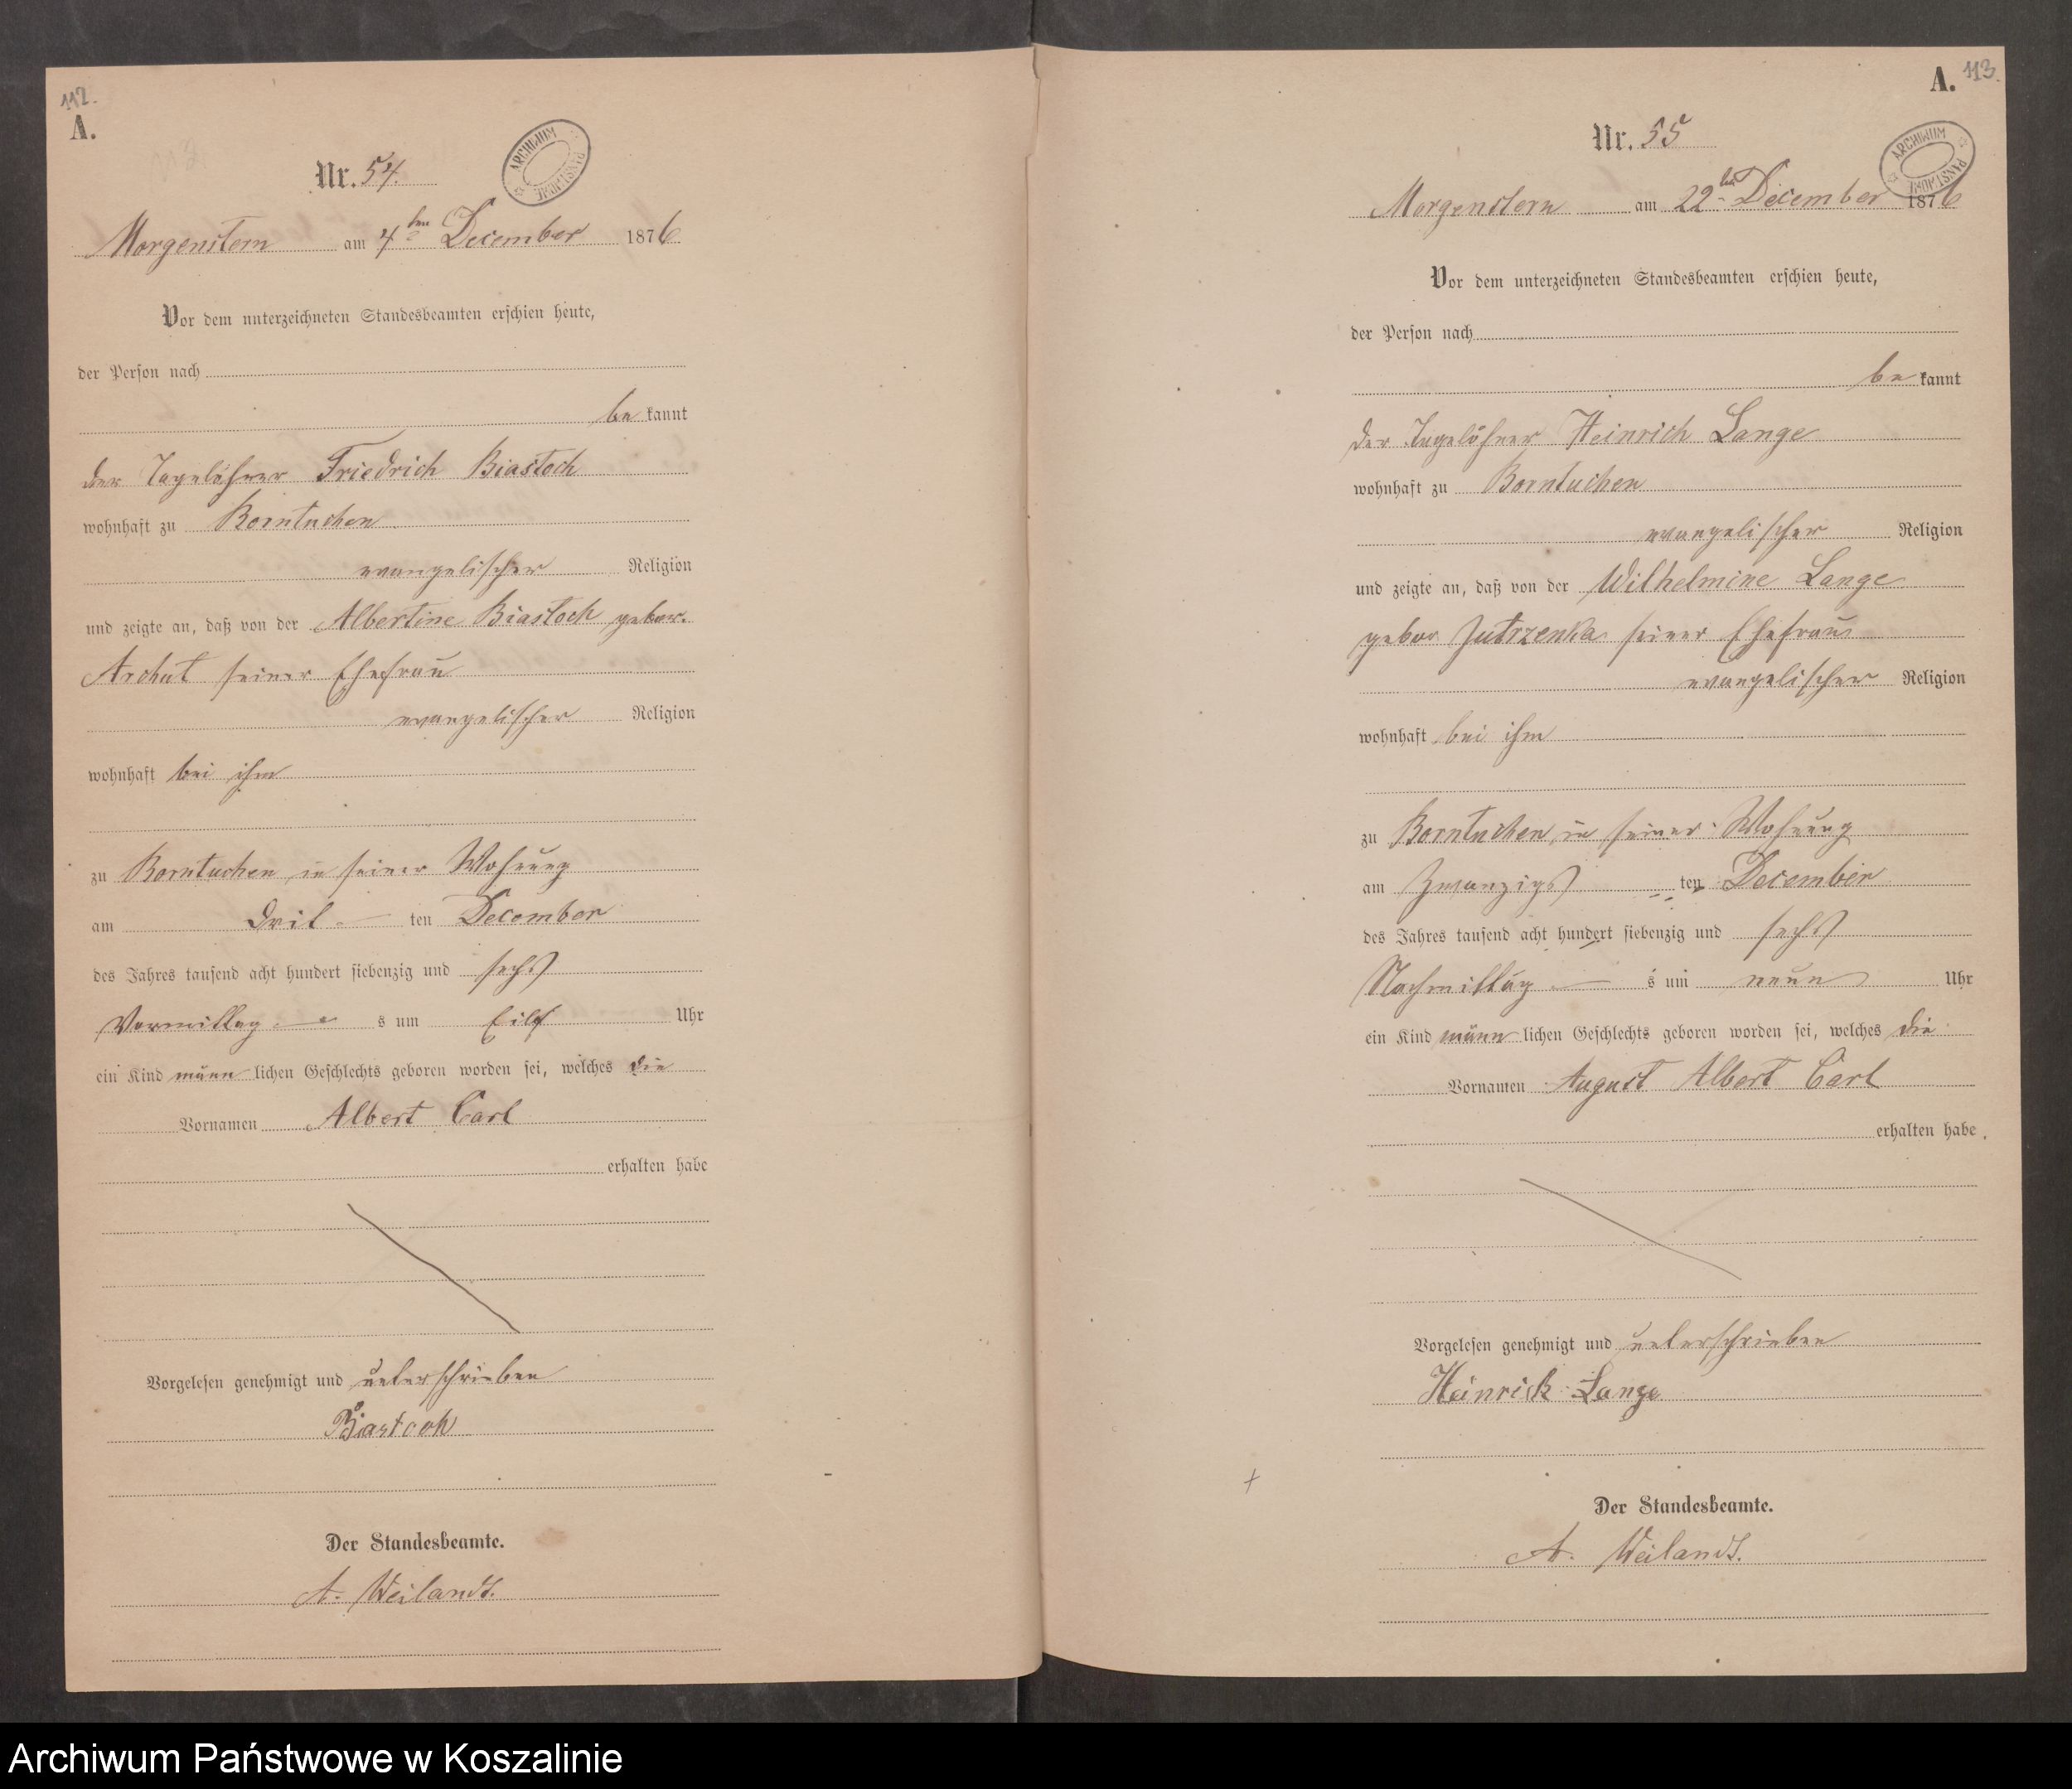 112.
A.
ARCHIWUM PAŃSTWOWE
Nr. 54.
Morgenstern am 4ten December 1876.
Vor dem unterzeichneten Standesbeamten erschien heute,
der Person nach
be kannt
der Tagelöhner Friedrich Biastoch
wohnhaft zu Borntuchen
evangelischer Religion
und zeigte an, daß von der Albertine Biastoch gebor.
Archut seiner Ehefrau
evangelischer Religion
wohnhaft bei ihm
zu Borntuchen in seiner Wohnung
am Drit ten December
des Jahres tausend acht hundert siebenzig und sechs
Vormittag s um Eilf Uhr
ein Kind männ lichen Geschlechts geboren worden sei, welches die
Vornamen Albert Carl
erhalten habe
Vorgelesen genehmigt und unterschrieben
Biastoch
Der Standesbeamte.
A. Weilandt.
A. 113.
ARCHIWUM PAŃSTWOWE
Nr. 55
Morgenstern am 22ten December 1876
Vor dem unterzeichneten Standesbeamten erschien heute,
der Person nach
be kannt
der Tagelöhner Heinrich Lange
wohnhaft zu Borntuchen
evangelischer Religion
und zeigte an, daß von der Wilhelmine Lange
gebor Jutrzenka seiner Ehefrau
evangelischer Religion
wohnhaft bei ihm
zu Borntuchen, in seiner Wohnung
am Zwanzigs ten December
des Jahres tausend acht hundert siebenzig und sechs
Nachmittag s um neun Uhr
ein Kind männ lichen Geschlechts geboren worden sei, welches die
Vornamen August Albert Carl
erhalten habe.
Vorgelesen genehmigt und unterschrieben
Heinrich Lange
Der Standesbeamte.
A. Weilandt.
Archiwum Państwowe w Koszalinie